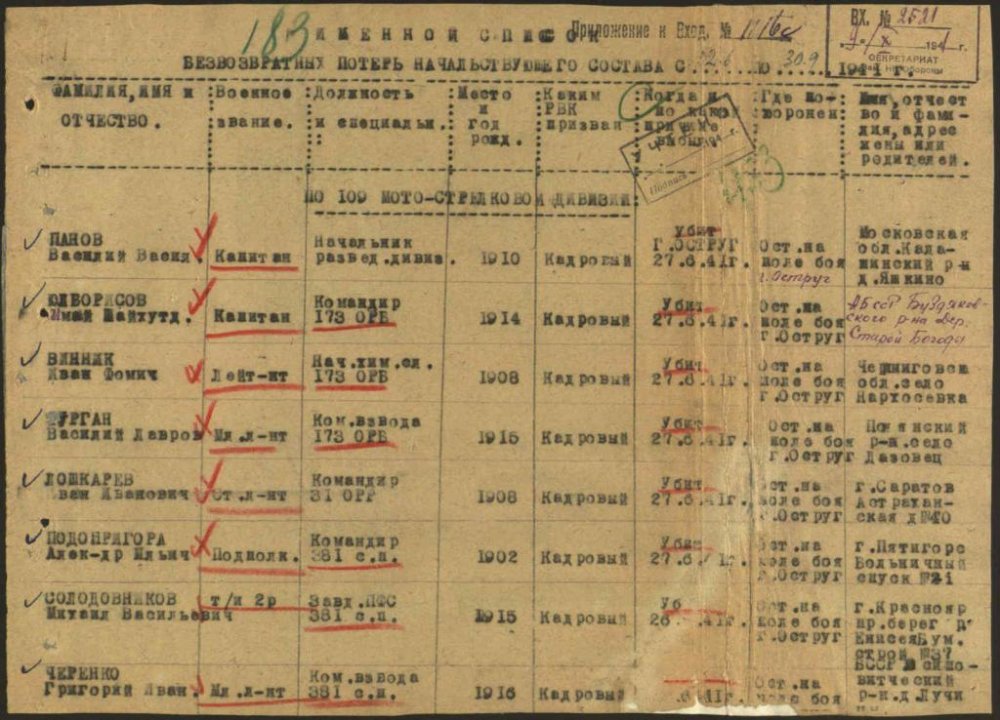 183
ИМЕННОЙ СПИСОК
Приложение к Вход. №
ВХ. № 2521
X 194 г.
СЕКРЕТАРИАТ
БЕЗВОЗВРАТНЫХ ПОТЕРЬ НАЧАЛЬСТВУЮЩЕГО СОСТАВА С 22.6 ПО 30.9 1941 г.
ФАМИЛИЯ, ИМЯ и ОТЧЕСТВО.
Военное звание.
Должность и специальн.
Место и год рожд.
Каким РВК призван
Когда и по какой причине
Где похоронен
Имя, отчество и фамилия, адрес жены или родителей.
Подпись
ПО 109 МОТО-СТРЕЛКОВОЙ ДИВИЗИИ:
ПАНОВ
Василий Васил
Капитан
Начальник
развед.дивиз.
1910
Кадровый
Убит
Г.ОСТРУГ
27.6.41г.
Ост.на
поле боя
г.Оструг
Московская
обл.Када-
шинский р-н
д.Яшкино
ЮЛБОРИСОВ
Имай Шайхутд.
Капитан
Командир
173 ОРБ
1914
Кадровый
Убит
27.6.41г.
Ост.на
поле боя
г.Оструг
АБССР Буздяков-
ского р-на дер.
Старой Богоды
ВИННИК
Иван Фомич
Лейт-нт
Нач.хим.сл.
173 ОРБ
1908
Кадровый
Убит
27.6.41г.
Ост.на
поле боя
г.Оструг
Черниговск
обл.село
Нархосевка
ФУРГАН
Василий Лавров
Мл.л-нт
Ком.взвода
173 ОРБ
1915
Кадровый
Убит
27.6.41г.
Ост.на
поле боя
г.Оструг
р-н.село
Лазовец
ЛОШКАРЕВ
Иван Иванович
Ст.л-нт
Командир
31 ОРР
1908
Кадровый
Убит
27.6.41г.
Ост.на
поле боя
г.Оструг
г.Саратов
Астрахан-
ская д№40
ПОДОПРИГОРА
Алек-др Ильич
Подполк.
Командир
381 с.п.
1902
Кадровый
Убит
27.6.41г.
Ост.на
поле боя
г.Оструг
г.Пятигорс
Больничный
спуск №21
СОЛОДОВНИКОВ
Михаил Васильевич
т/и 2р
Завд.ПФС
381 с.п.
1915
Кадровый
Уб
26.6.41г.
Ост.на
поле боя
г.Оструг
г.Краснояр
пр.берег р
Енисея Бум.
строй №37
ЧЕРЕНКО
Григорий Иван.
Мл.л-нт
Ком.взвода
381 с.п.
1916
Кадровый
.6.41г.
Ост.на
поле боя
БССР
витческий
р-н.д Лучи